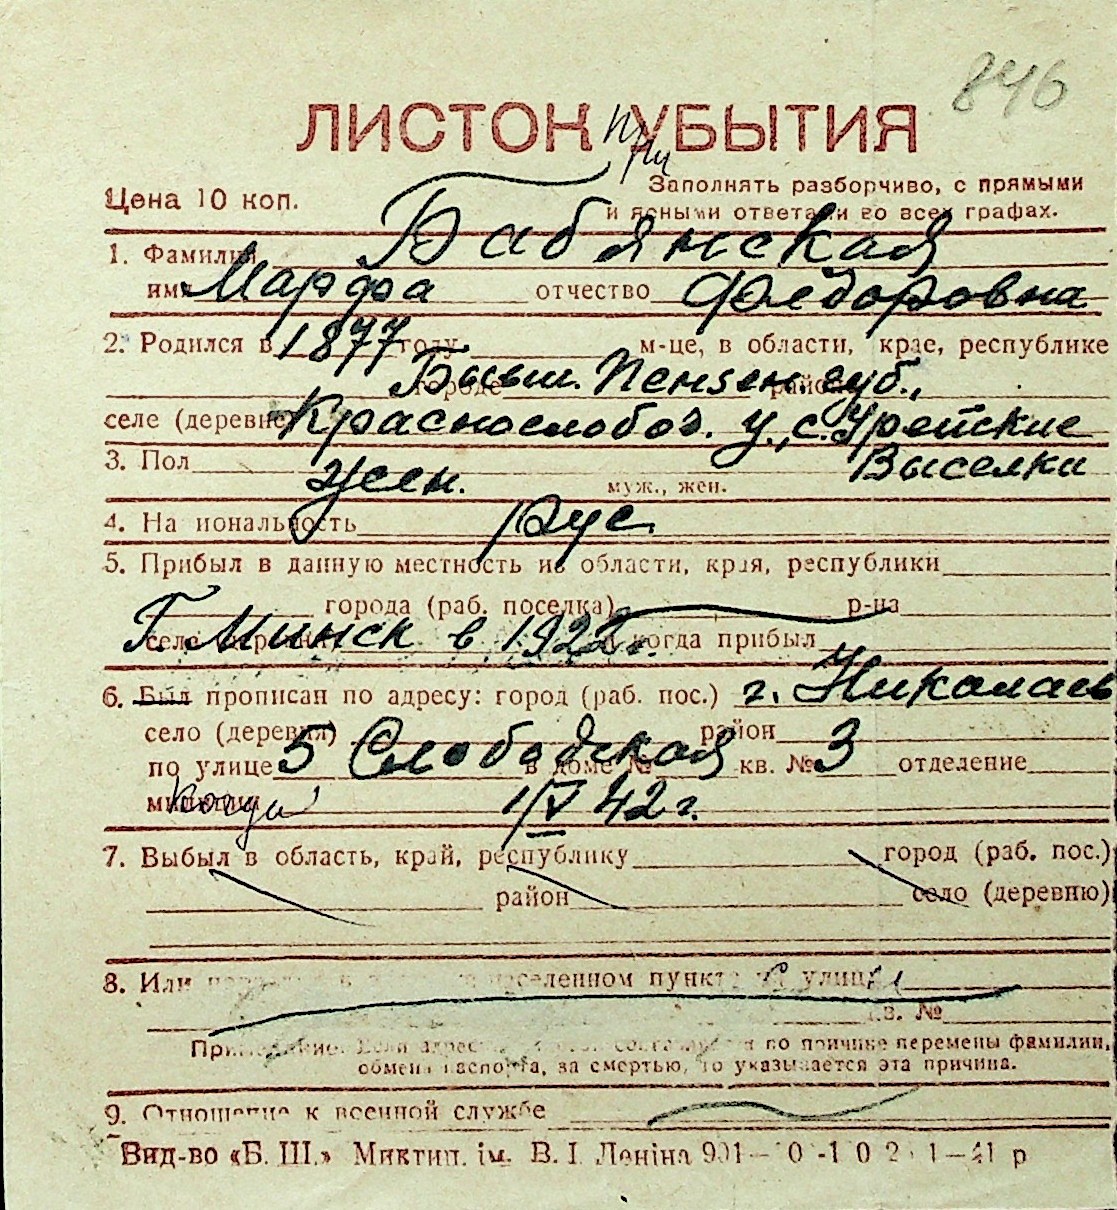 846
ЛИСТОК при УБЫТИЯ
Цена 10 коп.
Заполнять разборчиво, с прямыми
и ясными ответами во всех графах.
1. Фамилия Бабянская
имя Марфа отчество Федоровна
2. Родился в 1877 году м-це, в области, крае, республике
городе Бывш. Пензен. губ., район
селе (деревне) Краснослобод. у., с. Урейские
3. Пол жен. муж., жен. Выселки
4. Национальность рус.
5. Прибыл в данную местность из области, края, республики
города (раб. поселка) р-на
села (деревни) Г. Минск в 1922 г. и когда прибыл
6. Был прописан по адресу: город (раб. пос.) г. Николаев
село (деревня) район
по улице 5 Слободская в доме № кв. № 3 отделение
милиции когда 1/V 42 г.
7. Выбыл в область, край, республику город (раб. пос.)
район село (деревню)
8. Или населенном пункте улицы
кв. №
Примечание. Если по причине перемены фамилии,
обмена паспорта, за смертью, то указывается эта причина.
9. Отношение к военной службе
Вид-во «Б. Ш.» Миктип. ім. В. І. Леніна